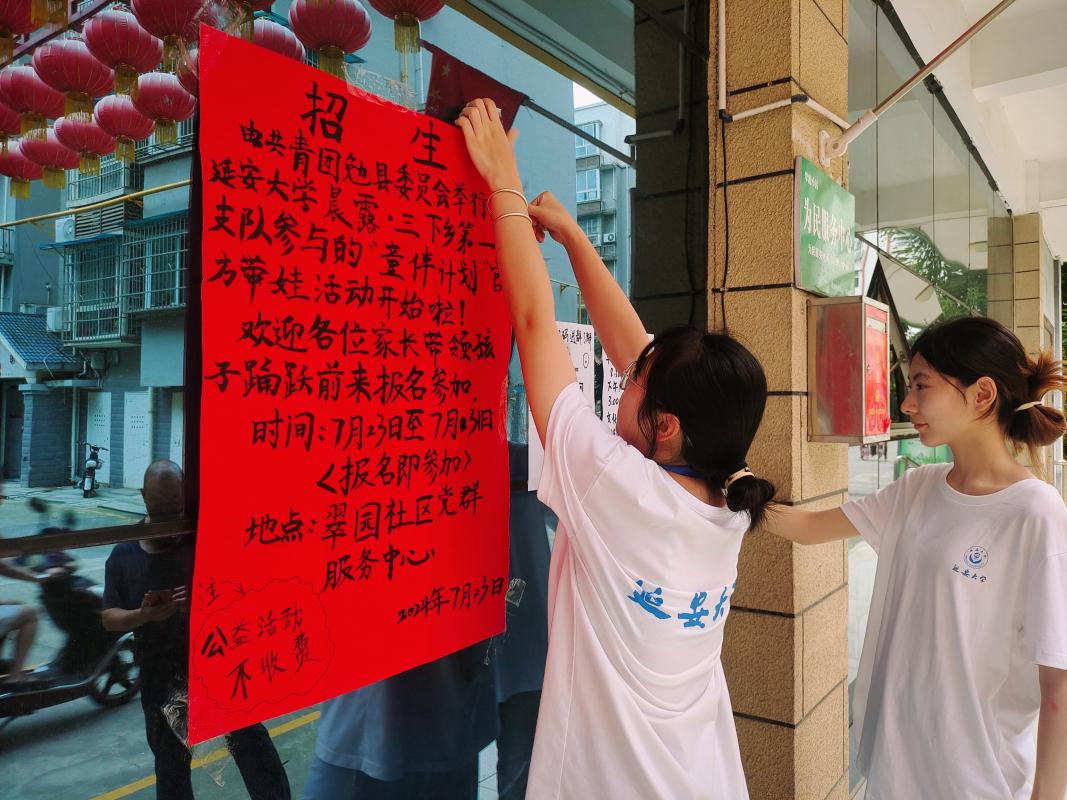 招 生
由共青团勉县委员会举行
延安大学晨露·三下乡第一
支队参与的“童伴计划”官
方带娃活动开始啦！
欢迎各位家长带领孩
子踊跃前来报名参加.
时间：7月23日至7月23日
<报名即参加>
地点：翠园社区党群
服务中心
2024年7月23日
公益活动
不收费
为民服务中心
延安大
延安大学